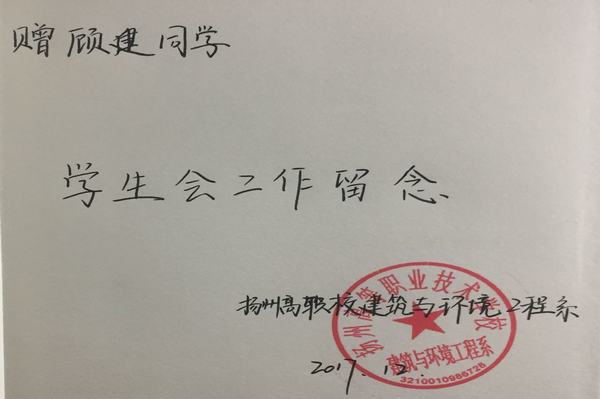 赠顾建同学
学生会工作留念
扬州高职校建筑与环境工程系
2017.12.
扬州高等职业技术学校
建筑与环境工程系
3210010986726